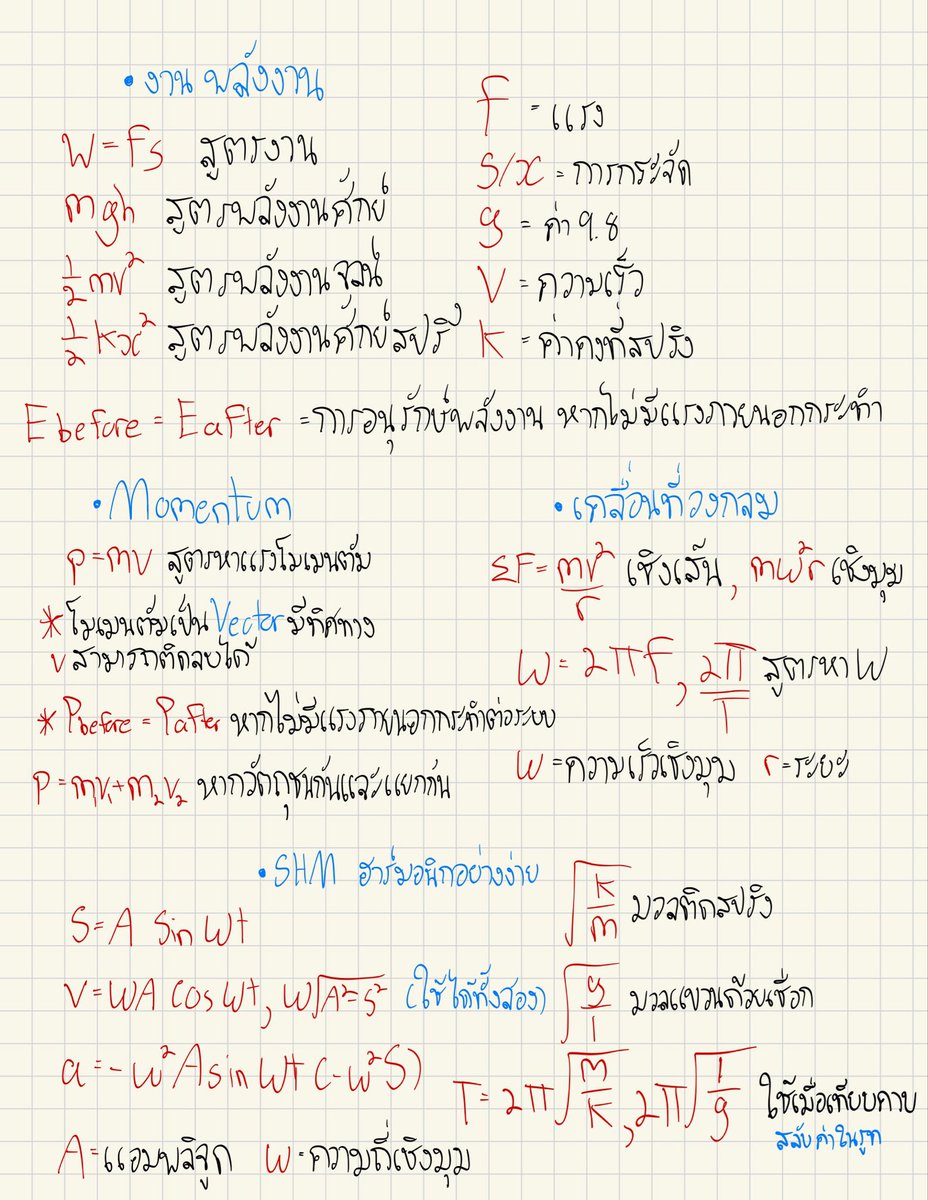 • งาน พลังงาน
W = Fs สูตรงาน
mgh สูตรพลังงานศักย์
½mv² สูตรพลังงานจลน์
½kx² สูตรพลังงานศักย์สปริง
F = แรง
S/x = การกระจัด
g = ค่า 9.8
V = ความเร็ว
K = ค่าคงที่สปริง
Ebefore = Eafter = การอนุรักษ์พลังงาน หากไม่มีแรงภายนอกกระทำ
• Momentum
p = mv สูตรหาแรงโมเมนตัม
* โมเมนตัมเป็น Vector มีทิศทาง
v สามารถติดลบได้
* Pbefore = Pafter หากไม่มีแรงภายนอกกระทำต่อระบบ
P = m₁v₁ + m₂v₂ หากวัตถุชนกันและแยกกัน
• เคลื่อนที่วงกลม
ΣF = mv²/r เชิงเส้น, mω²r เชิงมุม
ω = 2πf, 2π/T สูตรหา ω
ω = ความเร็วเชิงมุม r = ระยะ
• SHM ฮาร์มอนิกอย่างง่าย
S = A sin ωt
v = ωA cos ωt, ω√(A²-s²) (ใช้ได้ทั้งสอง)
a = -ω²A sin ωt (-ω²S)
A = แอมพลิจูด ω = ความถี่เชิงมุม
√(k/m) มวลติดสปริง
√(g/l) มวลแขวนด้วยเชือก
T = 2π√(m/k), 2π√(l/g) ใช้เมื่อเทียบคาบ
สลับค่าในรูท